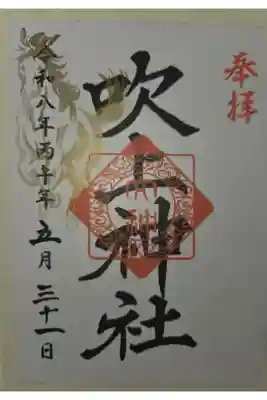 奉拝
吹上神社
令和八年丙午年 五月 三十一日